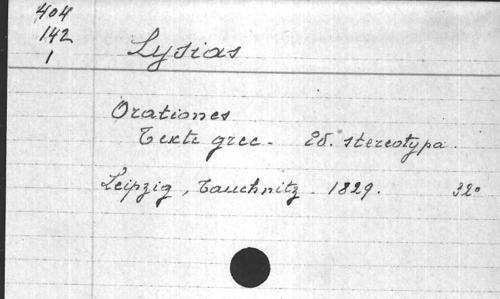 404
142
1
Lysias
Orationes
Texte grec. Ed. stereotypa.
Leipzig, Tauchnitz. 1829. 32o